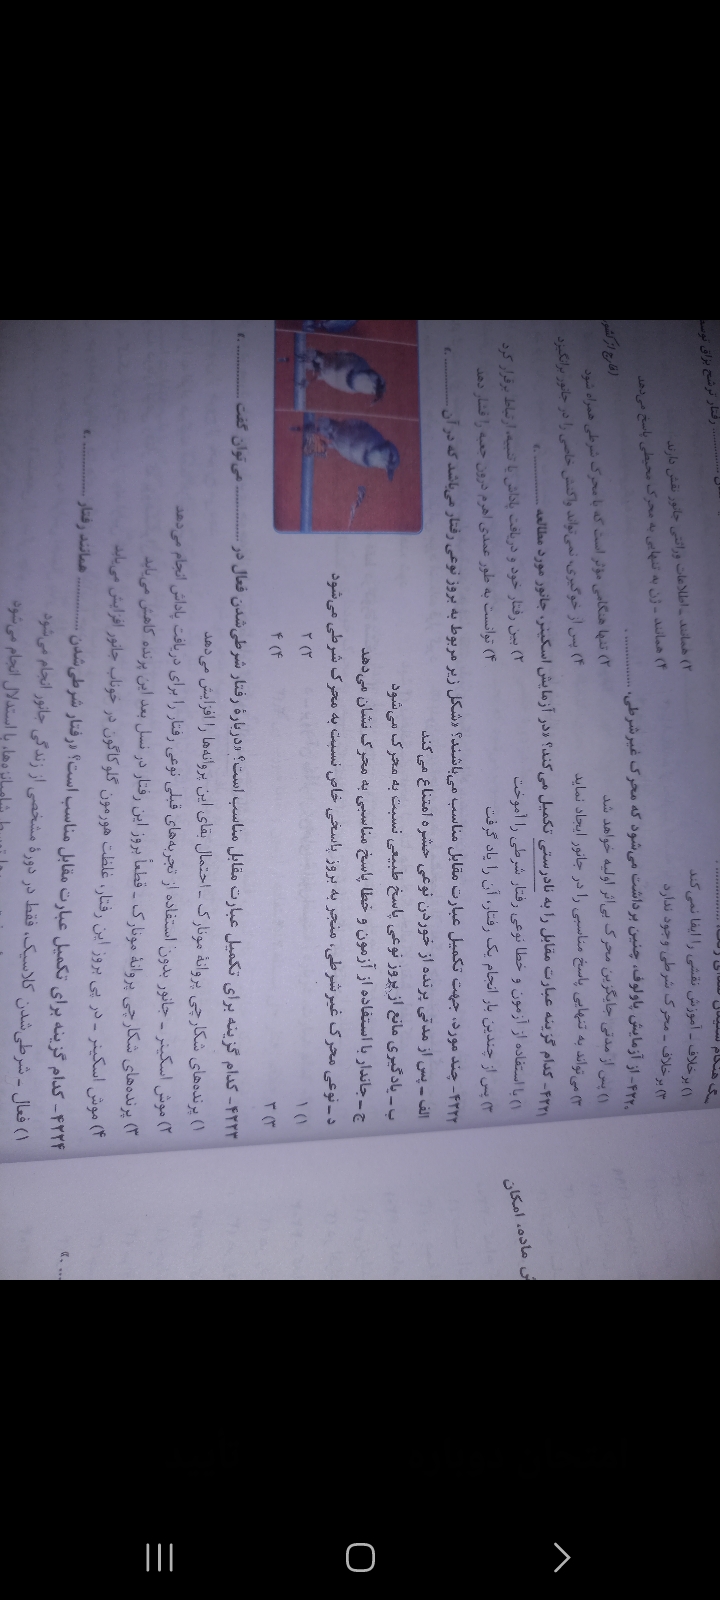 ۲) همانند – اطلاعات وراثتی جانور نقش دارند
۱) برخلاف – آموزش نقشی را ایفا نمی‌کند
۴) همانند – ژن به تنهایی به محرک محیطی پاسخ می‌دهد
۳) برخلاف – محرک شرطی وجود ندارد
۴۲۲۰- از آزمایش پاولوف، چنین برداشت می‌شود که محرک غیرشرطی، ............ .
۱) پس از مدتی جایگزین محرک بی‌اثر اولیه خواهد شد
۲) تنها هنگامی مؤثر است که با محرک شرطی همراه شود
۳) می‌تواند به تنهایی پاسخ مناسبی را در جانور ایجاد نماید
۴) پس از خوگیری، نمی‌تواند واکنش خاصی را در جانور برانگیزد
۴۲۲۱- کدام گزینه عبارت مقابل را به نادرستی تکمیل می‌کند؟ «در آزمایش اسکینر، جانور مورد مطالعه ............ .»
۱) با استفاده از آزمون و خطا نوعی رفتار شرطی را آموخت
۲) بین رفتار خود و دریافت پاداش یا تنبیه، ارتباط برقرار کرد
۳) پس از چندین بار انجام یک رفتار، آن را یاد گرفت
۴) توانست به طور عمدی اهرم درون جعبه را فشار دهد
۴۲۲۲- چند مورد، جهت تکمیل عبارت مقابل مناسب می‌باشند؟ «شکل زیر مربوط به بروز نوعی رفتار می‌باشد که در آن ............ .»
الف – پس از مدتی پرنده از خوردن نوعی حشره امتناع می‌کند
ب – یادگیری مانع از بروز نوعی پاسخ طبیعی نسبت به محرک می‌شود
ج – جاندار با استفاده از آزمون و خطا پاسخ مناسبی به محرک نشان می‌دهد
د – نوعی محرک غیرشرطی، منجر به بروز پاسخی خاص نسبت به محرک شرطی می‌شود
۱) ۱
۲) ۲
۳) ۳
۴) ۴
۴۲۲۳- کدام گزینه برای تکمیل عبارت مقابل مناسب است؟ «دربارهٔ رفتار شرطی‌شدن فعال در ............ می‌توان گفت ............ .»
۱) پرنده‌های شکارچی پروانهٔ مونارک – احتمال بقای این پروانه‌ها را افزایش می‌دهد
۲) موش اسکینر – جانور بدون استفاده از تجربه‌های قبلی نوعی رفتار را برای دریافت پاداش انجام می‌دهد
۳) پرنده‌های شکارچی پروانهٔ مونارک – قطعاً بروز این رفتار در نسل بعد این پرنده کاهش می‌یابد
۴) موش اسکینر – در پی بروز این رفتار، غلظت هورمون گلوکاگون در خوناب جانور افزایش می‌یابد
۴۲۲۴- کدام گزینه برای تکمیل عبارت مقابل مناسب است؟ «رفتار شرطی‌شدن ............ همانند رفتار ............ .»
۱) فعال – شرطی‌شدن کلاسیک، فقط در دورهٔ مشخصی از زندگی جانور انجام می‌شود
ش ماده، امکان